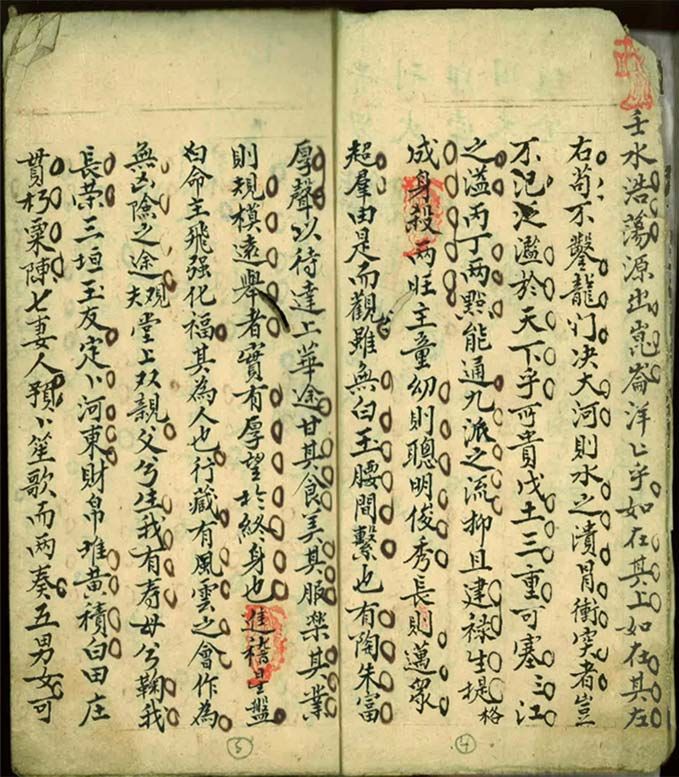 壬水浩蕩源出崑崙洋〻乎如在其上如在其左
右苟不鑿龍门决大河則水之潰冒衝突者豈
不氾泛濫於天下乎可貴戊土三重可塞三江
之溢丙丁两點能通九派之流抑且建禄生提格
成身殺两旺主童幼則聰明俊秀長則邁衆
超羣由是而觀雖無白玉腰間繫也有陶朱富
厚聲以待達上華途甘其食美其服樂其業
則規模遠舉者實有厚望於終身也進禧星盤
自命主飛强化福其為人也行藏有風雲之會作為
無凶險之途觀夫堂上双親父兮生我有寿母兮鞠我
長荣三垣玉友定〻河東財帛堆黄積白田庄
貫朽粟陳七妻人預〻笙歌而两奏五男女可
4
5